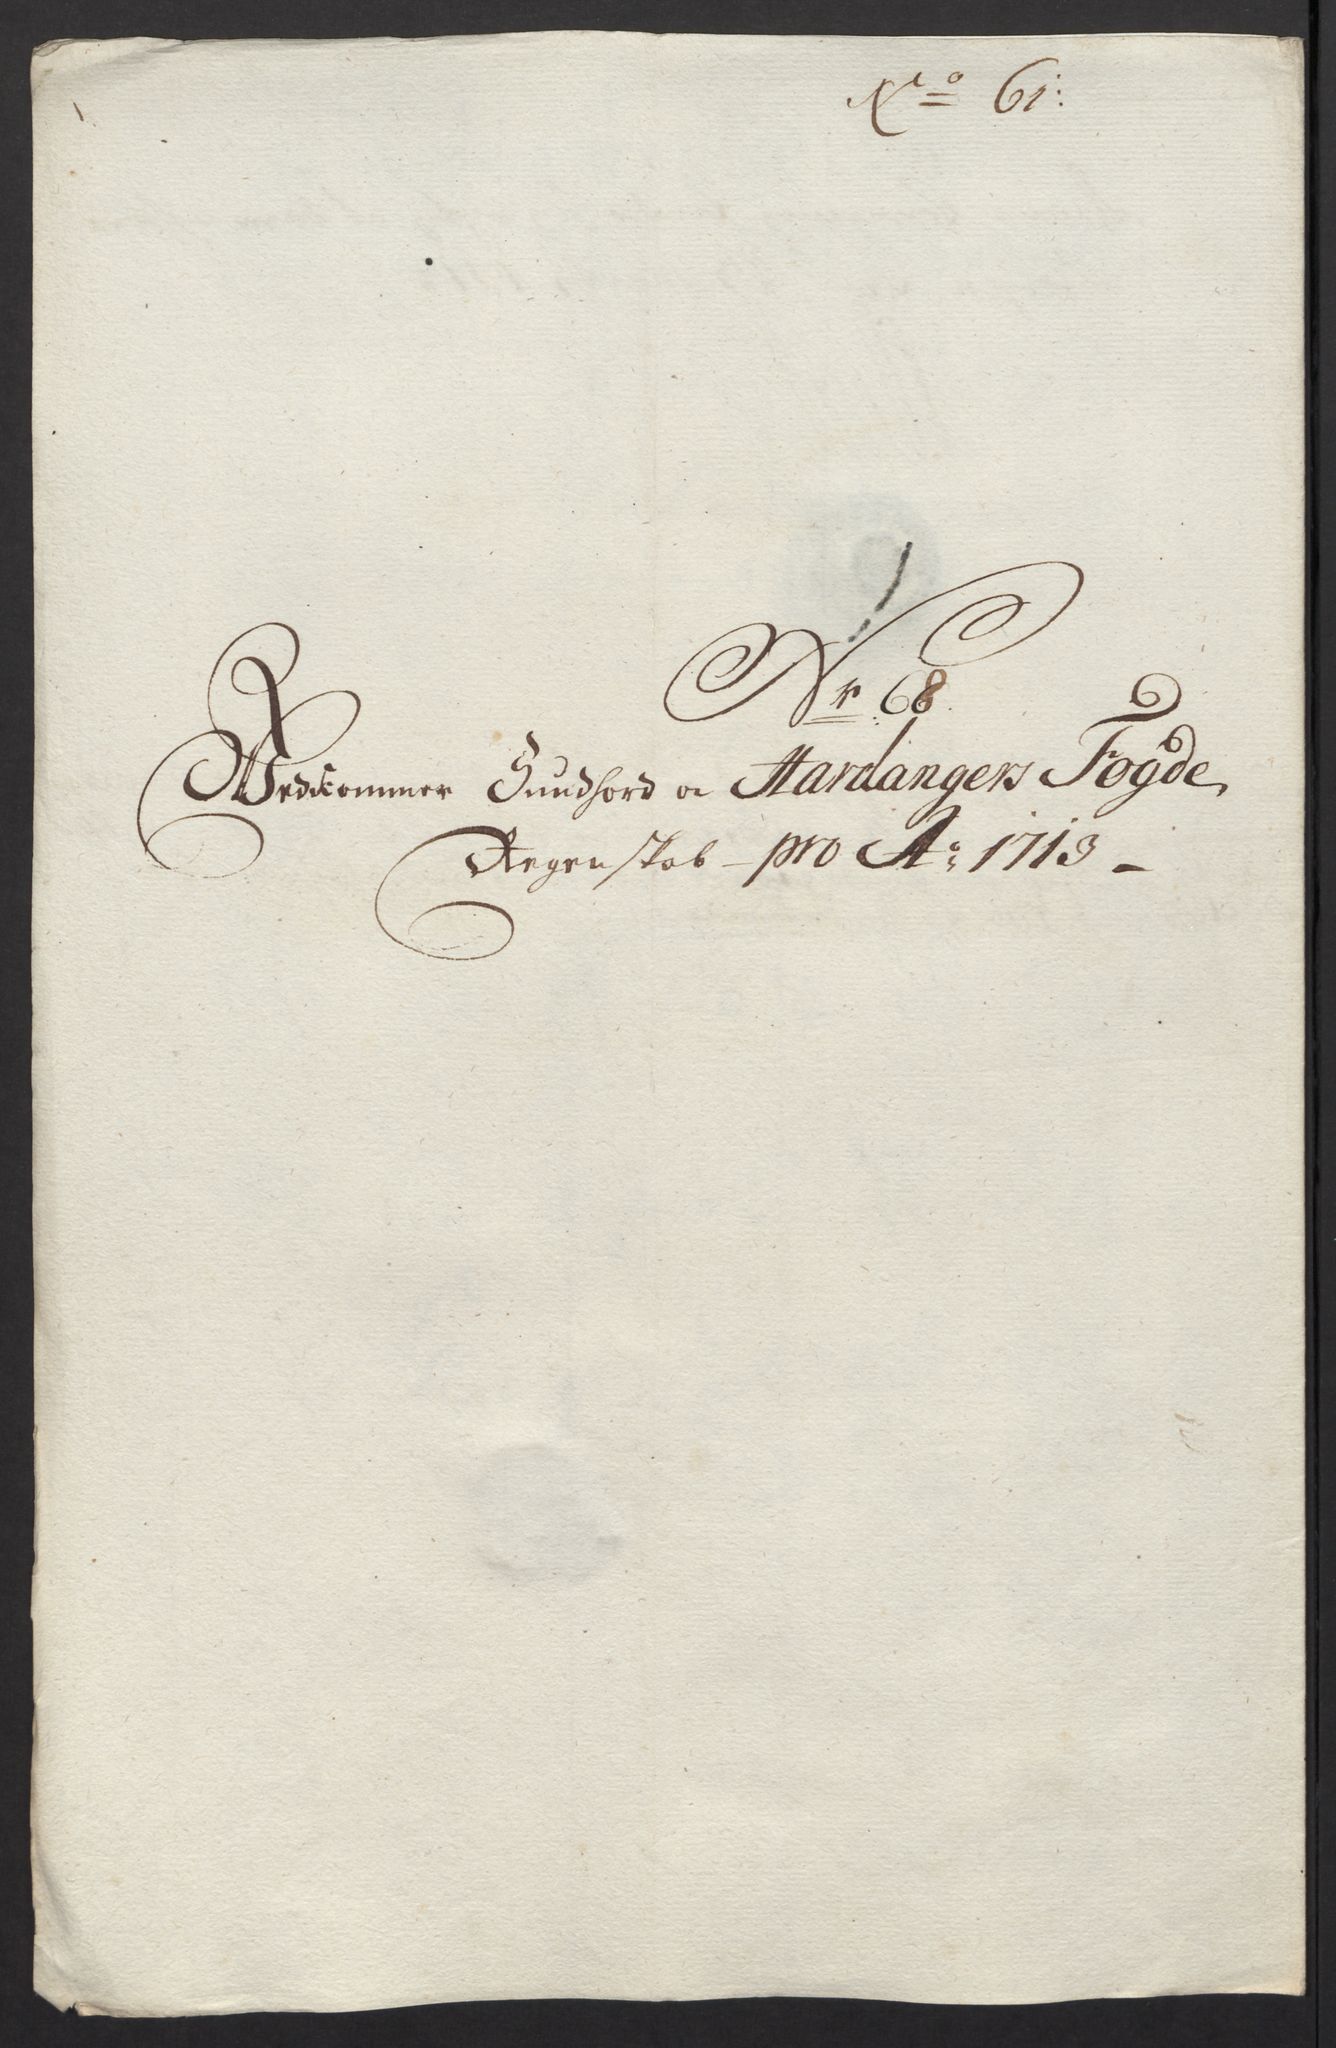 No 61:
Nr 68
Vedkommer Sundhord oc Hardangers Fogde
Regenskab – pro Ao 1713 –